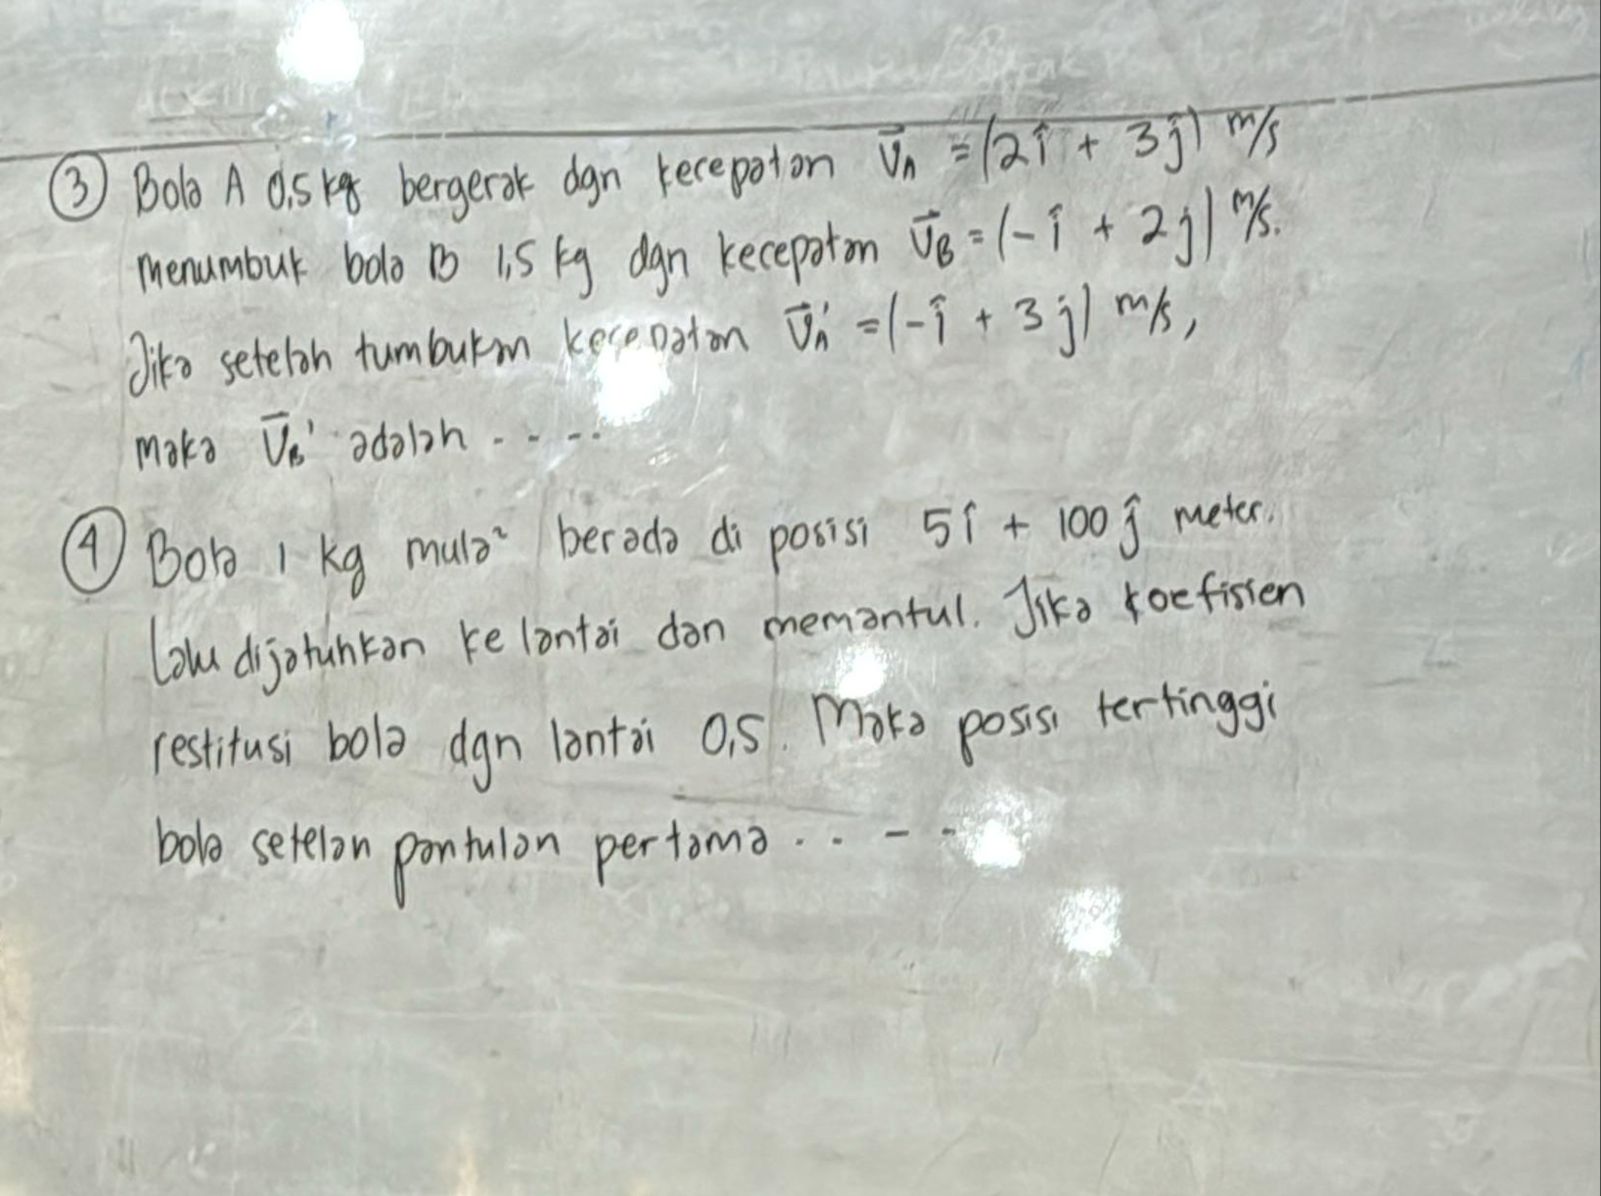 ③ Bola A 0,5 kg bergerak dgn kecepatan v⃗A = (2î + 3ĵ) m/s
menumbuk bola B 1,5 kg dgn kecepatan v⃗B = (-î + 2ĵ) m/s.
Jika setelah tumbukan kecepatan v⃗A' = (-î + 3ĵ) m/s,
maka v⃗B' adalah - - - -
④ Bola 1 kg mula² berada di posisi 5î + 100ĵ meter.
Lalu dijatuhkan ke lantai dan memantul. Jika koefisien
restitusi bola dgn lantai 0,5. Maka posisi tertinggi
bola setelah pantulan pertama . . - -